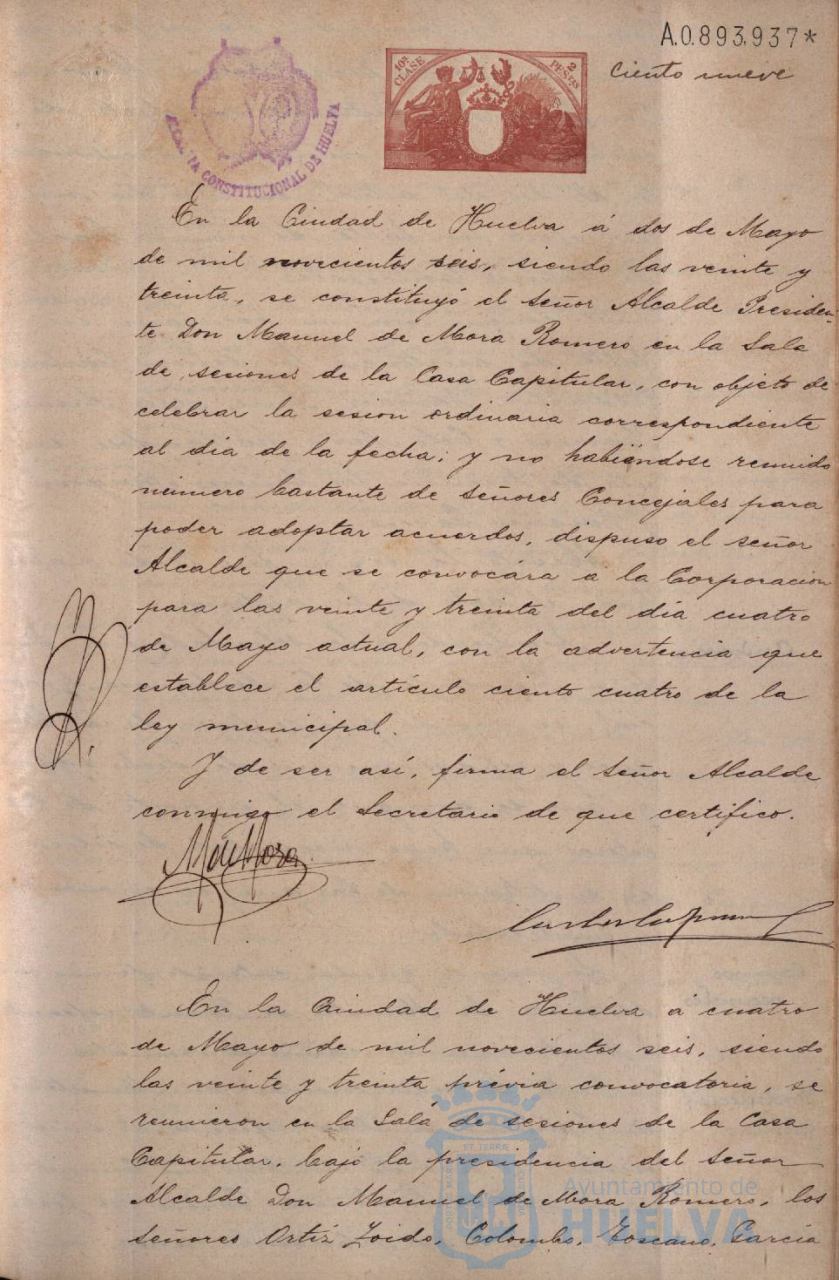 A.0.893.937*
10ª CLASE
2 PESETAS
Ciento nueve
CONSTITUCIONAL DE HUELVA
En la Ciudad de Huelva á dos de Mayo
de mil novecientos seis, siendo las veinte y
treinta, se constituyó el señor Alcalde Presiden
te Don Manuel de Mora Romero en la Sala
de sesiones de la Casa Capitular, con objeto de
celebrar la sesion ordinaria correspondiente
al dia de la fecha; y no habiéndose reunido
número bastante de señores Concejales para
poder adoptar acuerdos, dispuso el señor
Alcalde que se convocára a la Corporación
para las veinte y treinta del dia cuatro
de Mayo actual, con la advertencia que
establece el artículo ciento cuatro de la
ley municipal.
Y de ser así, firma el señor Alcalde
conmigo el Secretario de que certifico.
M de Mora
En la Ciudad de Huelva á cuatro
de Mayo de mil novecientos seis, siendo
las veinte y treinta prévia convocatoria, se
reunieron en la Sala de sesiones de la Casa
Capitular, bajo la presidencia del señor
Alcalde Don Manuel de Mora Romero, los
señores Ortiz, Zoido, Colombo, Toscano, García
Ayuntamiento de
HUELVA